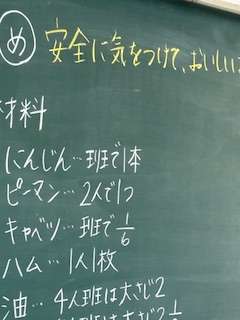 め 安全に気をつけて、おいしい
材料
にんじん…班で1本
ピーマン…2人で1つ
キャベツ…班で1/6
ハム…1人1枚
油…4人班は大さじ2